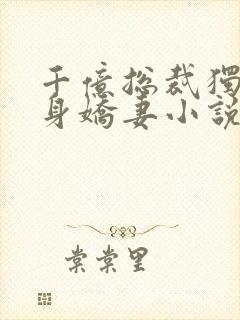 千億總裁獨
身嬌妻小說
棠棠里